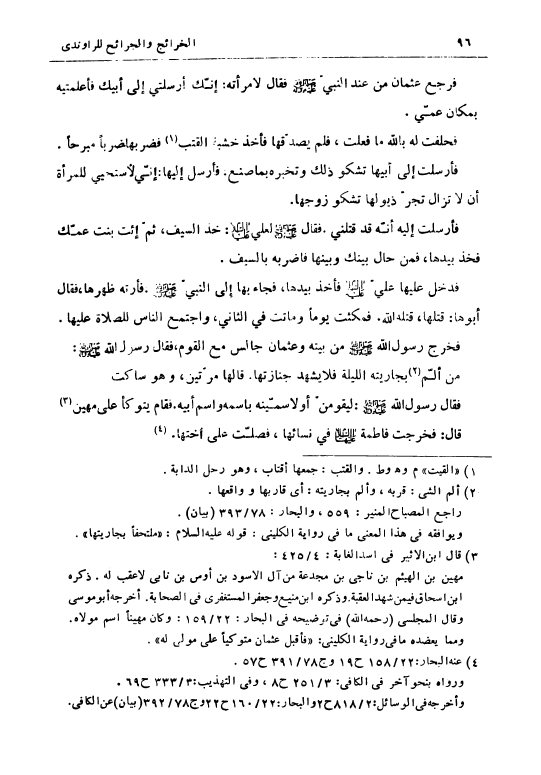 ٩٦ الخرائج والجرائح للراوندى
فرجع عثمان من عند النبيّ ﷺ فقال لامرأته: إنّك أرسلتي إلى أبيك فأعلمتيه
بمكان عمّي .
فحلفت له بالله ما فعلت ، فلم يصدّقها فأخذ خشبة القتب(١) فضربها ضرباً مبرحاً .
فأرسلت إلى أبيها تشكو ذلك وتخبره بما صنع. فأرسل إليها: إنّي لأستحيي للمرأة
أن لا تزال تجرّ ذيولها تشكو زوجها.
فأرسلت إليه أنّه قد قتلني . فقال ﷺ لعلي عليه السلام: خذ السيف، ثمّ إئت بنت عمّك
فخذ بيدها، فمن حال بينك وبينها فاضربه بالسيف .
فدخل عليها عليّ عليه السلام فأخذ بيدها، فجاء بها إلى النبيّ ﷺ . فأرته ظهرها، فقال
أبوها: قتلها، قتله الله. فمكثت يوماً وماتت في الثاني، واجتمع الناس للصلاة عليها .
فخرج رسول الله ﷺ من بيته وعثمان جالس مع القوم، فقال رسول الله ﷺ :
من ألمّ(٢) بجاريته الليلة فلا يشهد جنازتها. قالها مرّتين، وهو ساكت
فقال رسول الله ﷺ : ليقومنّ أو لاسمّينّه باسمه واسم أبيه. فقام يتوكأ على مهين(٣)
قال: فخرجت فاطمة عليها السلام في نسائها ، فصلّت على أختها. (٤)
١) «القيت» م وهـ وط . والقتب : جمعها أقتاب ، وهو رحل الدابة .
٢) ألم الشى : قربه ، وألم بجاريته : أى قاربها و واقعها .
راجع المصباح المنير : ٥٥٩ ، والبحار : ٣٩٣/٧٨ (بيان) .
ويوافقه فى هذا المعنى ما فى رواية الكلينى : قوله عليه السلام : «ملتحفاً بجاريتها» .
٣) قال ابن الاثير فى اسد الغابة : ٤٢٥/٤ :
مهين بن الهيثم بن نابى بن مجدعة من آل الاسود بن أوس بن نابى لاعقب له . ذكره
ابن اسحاق فيمن شهد العقبة. وذكره ابن منيع وجعفر المستغفرى فى الصحابة. أخرجه أبوموسى
وقال المجلسى (رحمه الله) فى توضيحه فى البحار : ١٥٩/٢٢ : وكان مهيناً اسم مولاه.
ومما يعضده ما فى رواية الكلينى: «فأقبل عثمان متوكياً على مولى له» .
٤) عنه البحار: ١٥٨/٢٢ ح١٩ وج٣٩١/٧٨ ح٥٧.
ورواه بنحو آخر فى الكافى: ٢٥١/٣ ح٨ ، وفى التهذيب: ٣٣٣/٣ ح٦٩ .
وأخرجه فى الوسائل: ٨١٨/٢ ح٢ والبحار: ١٦٠/٢٢ ح٢٢ وج٣٩٢/٧٨ (بيان) عن الكافى.